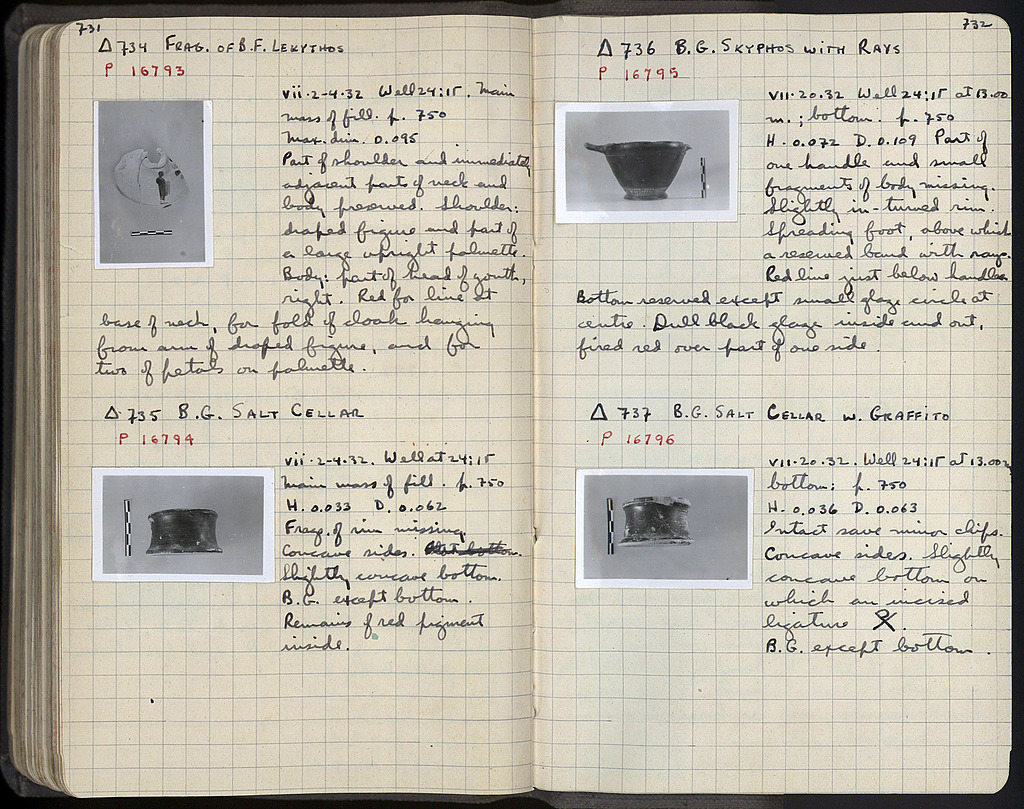 731
Δ 734 FRAG. OF B.F. LEKYTHOS
P 16793
vii-2-4-32 Well 24:15. Main
mass of fill. p. 750
Max. dim. 0.095
Part of shoulder and immediately
adjacent parts of neck and
body preserved. Shoulder:
draped figure and part of
a large upright palmette.
Body: part of head of youth,
right. Red for line at
base of neck, for fold of cloak hanging
from arm of draped figure, and for
two of petals on palmette.
Δ 735 B.G. SALT CELLAR
P 16794
vii-2-4-32. Well at 24:15
main mass of fill. p. 750
H. 0.033 D. 0.062
Frag. of rim missing
Concave sides. Flat bottom.
Slightly concave bottom.
B.G. except bottom.
Remains of red pigment
inside.
732
Δ 736 B.G. SKYPHOS WITH RAYS
P 16795
VII-20-32 Well 24:15 at 13.00
m.; bottom. p. 750
H. 0.072 D. 0.109 Part of
one handle and small
fragments of body missing.
Slightly in-turned rim.
Spreading foot, above which
a reserved band with rays.
Red line just below handles.
Bottom reserved except small glaze circle at
centre. Dull black glaze inside and out,
fired red over part of one side.
Δ 737 B.G. SALT CELLAR W. GRAFFITO
P 16796
VII-20-32. Well 24:15 at 13.00m
bottom; p. 750
H. 0.036 D. 0.063
Intact save minor chips.
Concave sides. Slightly
concave bottom on
which an incised
ligature
B.G. except bottom.